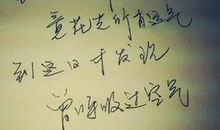 竟花光所有运气
到这日才发现
曾呼吸过空气